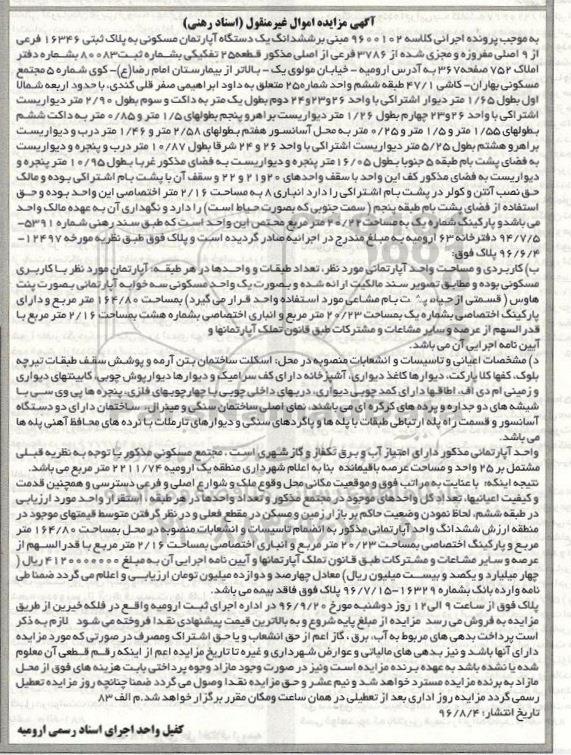 آگهی مزایده اموال غیرمنقول (اسناد رهنی)
به موجب پرونده اجرائی کلاسه ۹۶۰۰۱۰۲ مبنی بر ششدانگ یک دستگاه آپارتمان مسکونی به پلاک ثبتی ۱۶۳۴۶ فرعی
از ۹ اصلی مفروزه و مجزی شده از ۳۷۸۶ فرعی از اصلی مذکور قطعه ۲۵ تفکیکی بشماره ثبت ۸۰۰۸۳ بشماره دفتر
املاک ۷۵۲ صفحه ۳۶۷ به آدرس ارومیه - خیابان مولوی یک - بالاتر از بیمارستان امام رضا(ع)- کوی شماره ۵ مجتمع
مسکونی بهاران- کاشی ۴۷/۱ طبقه ششم واحد شماره ۲۵ متعلق به داود ابراهیمی صفر قلی کندی، با حدود اربعه شمالا
اول بطول ۱/۶۵ متر دیوار اشتراکی با واحد ۲۶و۲۳و۲۴ دوم بطول یک متر به داکت و سوم بطول ۲/۹۰ متر دیواریست
اشتراکی با واحد ۲۶و۲۳ چهارم بطول ۱/۲۶ متر دیواریست بر اهرو پنجم بطولهای ۱/۵ متر و ۰/۸۵ متر به داکت ششم
بطولهای ۱/۵۵ متر و ۱/۵ متر و ۰/۲۵ متر به محل آسانسور هفتم بطولهای ۲/۵۸ متر و ۱/۴۶ متر درب و دیواریست
بر اهرو هشتم بطول ۵/۲۵ متر دیواریست اشتراکی با واحد ۲۶ و ۲۴ شرقا بطول ۱۰/۸۷ متر درب و پنجره و دیواریست
به فضای پشت بام طبقه ۵ جنوبا بطول ۱۶/۰۵ متر پنجره و دیواریست به فضای مذکور غربا بطول ۱۰/۹۵ متر پنجره و
دیواریست به فضای مذکور کف این واحد با سقف واحدهای ۲۰و۲۱ و ۲۲ و سقف آن با پشت بام اشتراکی بوده و مالک
حق نصب آنتن و کولر در پشت بام اشتراکی را دارد انباری ۸ به مساحت ۲/۱۶ متر اختصاصی این واحد بوده و حق
استفاده از فضای پشت بام طبقه پنجم ( سمت جنوبی که بصورت حیاط است) را دارد و نگهداری آن به عهده مالک واحد
می باشد و پارکینگ شماره یک به مساحت ۲۰/۲۳ متر مربع مختص این واحد است که طبق سند رهنی شماره ۵۳۹۱-
۹۴/۷/۵ دفترخانه ۶۳ ارومیه به مبلغ مندرج در اجرائیه صادر گردیده است و پلاک فوق طبق نظریه مورخه ۱۲۴۹۷-
۹۶/۶/۴ پلاک فوق:
ب) کاربردی و مساحت واحد آپارتمانی مورد نظر، تعداد طبقات و واحدها در هر طبقه: آپارتمان مورد نظر با کاربری
مسکونی بوده و مطابق تصویر سند مالکیت ارائه شده و بصورت یک واحد مسکونی سه خوابه آپارتمانی بصورت پنت
هاوس ( قسمتی از حیاط پشت بام مشاعی مورد استفاده واحد قرار می گیرد) بمساحت ۱۶۴/۸۰ متر مربع و دارای
پارکینگ اختصاصی بشماره یک بمساحت ۲۰/۲۳ متر مربع و انباری اختصاصی بشماره هشت بمساحت ۲/۱۶ متر مربع با
قدرالسهم از عرصه و سایر مشاعات و مشترکات طبق قانون تملک آپارتمانها و
آیین نامه اجرایی آن می باشد.
د) مشخصات اعیانی و تاسیسات و انشعابات منصوبه در محل: اسکلت ساختمان بتن آرمه و پوشش سقف طبقات تیرچه
بلوک، کفها کلا پارکت، دیوارها کاغذ دیواری، آشپزخانه دارای کف سرامیک و دیوارها دیوارپوش چوبی، کابینتهای دیواری
و زمینی ام دی اف، اطاقها دارای کمد چوبی دیواری، دربهای داخلی چوبی با چهارچوبهای فلزی، پنجره ها پی وی سی با
شیشه های دو جداره و پرده های کرکره ای می باشد. نمای اصلی ساختمان سنگی و مینرال، ساختمان دارای دو دستگاه
آسانسور و قسمت راه پله ارتباطی طبقات با پله ها و پاگردهای سنگی و دیوارهای تارملات با نرده های محافظ آهنی پله ها
می باشد.
واحد آپارتمانی مذکور دارای امتیاز آب و برق تکفاز و گاز شهری است. مجتمع مسکونی مذکور با توجه به نظریه قبلی
مشتمل بر ۲۵ واحد و مساحت عرصه باقیمانده بنا به اعلام شهرداری منطقه یک ارومیه ۲۲۱۱/۷۴ متر مربع می باشد.
نتیجه اینکه: با عنایت به مراتب فوق و موقعیت مکانی محل وقوع ملک و شوارع اصلی و فرعی دسترسی و همچنین قدمت
و کیفیت اعیانیها، تعداد کل واحدهای موجود در مجتمع مذکور و تعداد واحدها در هر طبقه، استقرار واحد مورد ارزیابی
در طبقه ششم، لحاظ نمودن وضعیت حاکم بر بازار زمین و مسکن در مقطع فعلی و در نظر گرفتن متوسط قیمتهای موجود در
منطقه ارزش ششدانگ واحد آپارتمانی مذکور به انضمام تاسیسات و انشعابات منصوبه در محل بمساحت ۱۶۴/۸۰ متر
مربع و پارکینگ اختصاصی بمساحت ۲۰/۲۳ متر مربع و انباری اختصاصی بمساحت ۲/۱۶ متر مربع با قدرالسهم از
عرصه و سایر مشاعات و مشترکات طبق قانون تملک آپارتمانها و آیین نامه اجرایی آن به مبلغ ۴۱۲۰۰۰۰۰۰۰ ریال (
چهار میلیارد و یکصد و بیست میلیون ریال) معادل چهارصد و دوازده میلیون تومان ارزیابی و اعلام می گردد ضمنا طی
نامه وارده بانک بشماره ۱۶۳۲۹-۹۶/۷/۱۵ پلاک فوق فاقد بیمه می باشد.
پلاک فوق از ساعت ۹ الی ۱۲ روز دوشنبه مورخ ۹۶/۹/۲۰ در اداره اجرای ثبت ارومیه واقع در فلکه خیرین از طریق
مزایده به فروش می رسد مزایده از مبلغ پایه شروع و به بالاترین قیمت پیشنهادی نقدا فروخته می شود لازم به ذکر
است پرداخت بدهی های مربوط به آب، برق، گاز اعم از حق انشعاب و یا حق اشتراک و مصرف در صورتی که مورد مزایده
دارای آنها باشد و نیز بدهی های مالیاتی و عوارض شهرداری و غیره تا تاریخ مزایده اعم از اینکه رقم قطعی آن معلوم
شده یا نشده باشد به عهده برنده مزایده است ونیز در صورت وجود مازاد وجوه پرداختی بابت هزینه های فوق از محل
مازاد به برنده مزایده مسترد خواهد شد و نیم عشر و حق مزایده نقدا وصول می گردد ضمنا چنانچه روز مزایده تعطیل
رسمی گردد مزایده روز اداری بعد از تعطیلی در همان ساعت و مکان مقرر برگزار خواهد شد.م الف ۸۳
تاریخ انتشار: ۹۶/۸/۴
کفیل واحد اجرای اسناد رسمی ارومیه